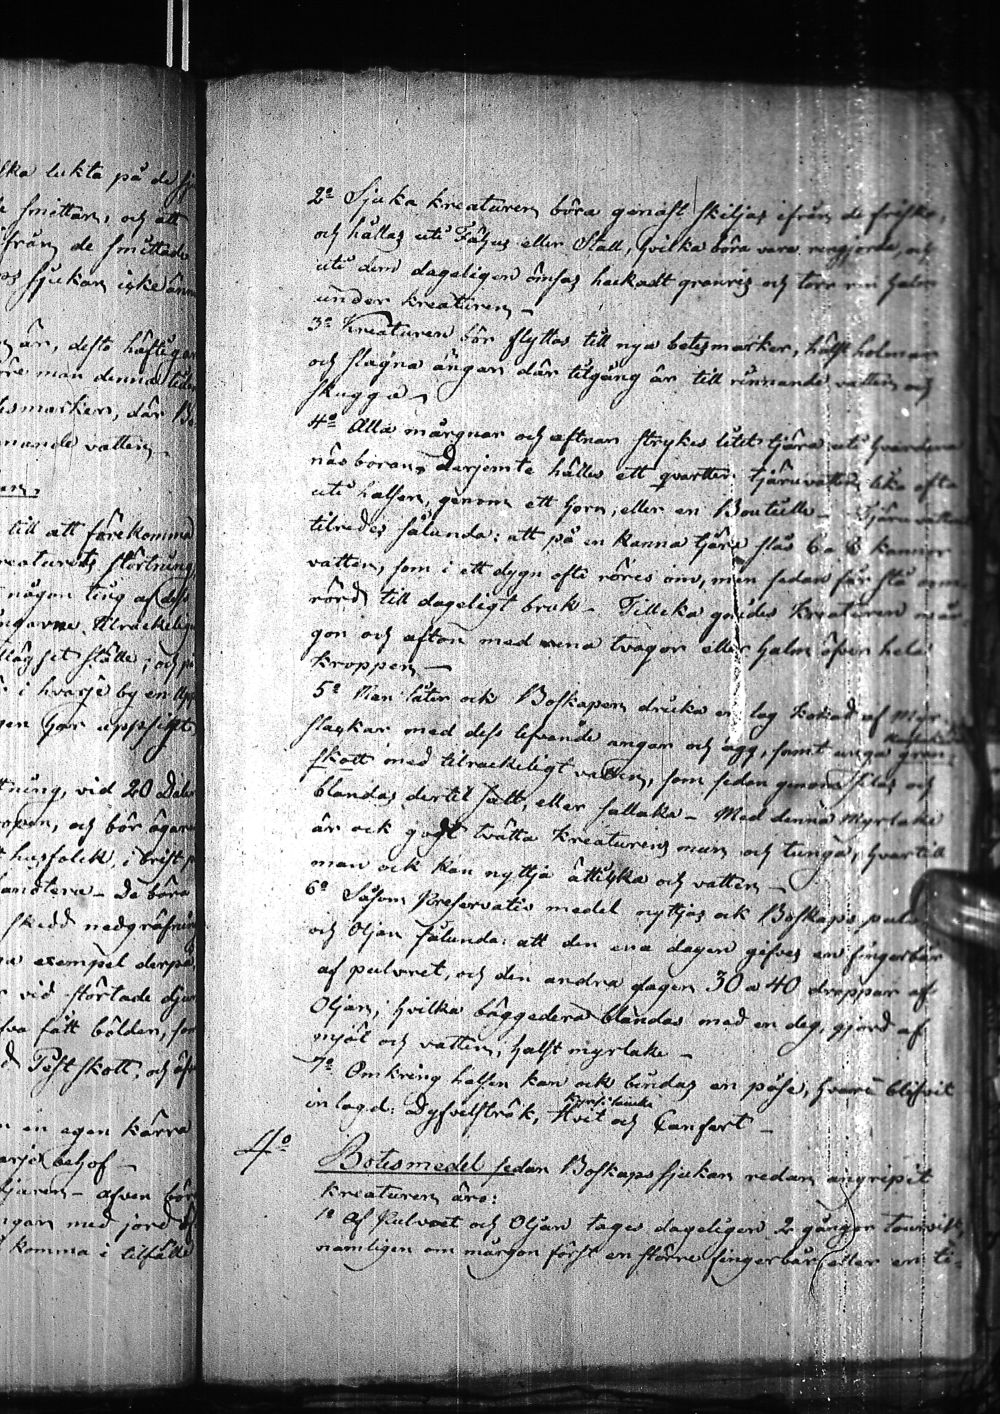 ska lukta på de sju
smittan, och att
från de smittade
sjukan icke änn
är, desto häftigar
re man denna tiden
smarken, där
nnande vatten
till att förekomma
reaturets störtning,
någon ting af dess
ngarne tilräckelig
ställe; och på
i hvarje by en
gen har uppsigt
tning, vid 20 Daler
open, och bör ägare
husfolck, i brist på
andtera - De böra
skedd nedgräfning
exempel derpå
vid störtade djur
fva fått bölder, som
Pestskott, och äfv
n en egen kärra
arje behof -
djuren - äfven bör
ngar med jord
komma i tilfälle
2º Sjuka kreaturen böra genast skiljas ifrån de friska,
och hållas uti Fähus eller Stall, hvilka böra vara rengjorde, och
uti dem dageligen ömsas hackadt granris och torr ren halm
under kreaturen -
3º Kreaturen bör flyttas till nya betesmarker, hälst holmar
och slagna ängar där tilgång är till rinnande vatten och
skugga -
4º Alla mårgnar och aftnar strykes litet tjära uti hvardera
näsboran, Derjemte hälles ett qvarter tjäruvatten lika ofta
uti halsen, genom ett horn, eller en Boutelle - Tjäruvattnet
tilredes sålunda: att på en kanna tjära slås 6 a 8 kannor
vatten, som i ett dygn ofta röres om, men sedan får stå orm
rördt till dageligt bruk - Tillika gnides Kreaturen mår
gon och afton med rena tvagor eller halm öfver hela
kroppen -
5º Man låter ock Boskapen dricka en lag kokad af Myr
stackar med dess lefvande angar och ägg, samt unga gran
skott med tilräckeligt vatten, som sedan genom silas och
blandas dertil salt, eller saltlaka - Med denna Myrlake
är ock godt tvätta Kreaturens mun och tunga, hvartill
man ock kan nyttja ättikka och vatten -
6º Såsom Preservativ medel nyttjas ock Boskaps pulv
och Oljan sålunda: att den ena dagen gifves en fingerbår
af pulvret, och den andra dagen 30 a 40 droppar af
Oljan, hvilka bäggedera blandas med en deg, gjord af
mjöl och vatten, halst myrlake -
7º Omkring halsen kan ock bindas en påse, hvari blifvit
inlagd: Dyfvelsträk, Hvit och Camfert -
4º
Botesmedel sedan Boskapssjukan redan angripit
kreaturen äro:
1º Af Pulvret och Oljan tages dageligen 2 gångor tourvist
namligen om mårgon först en större fingerbår eller en té=